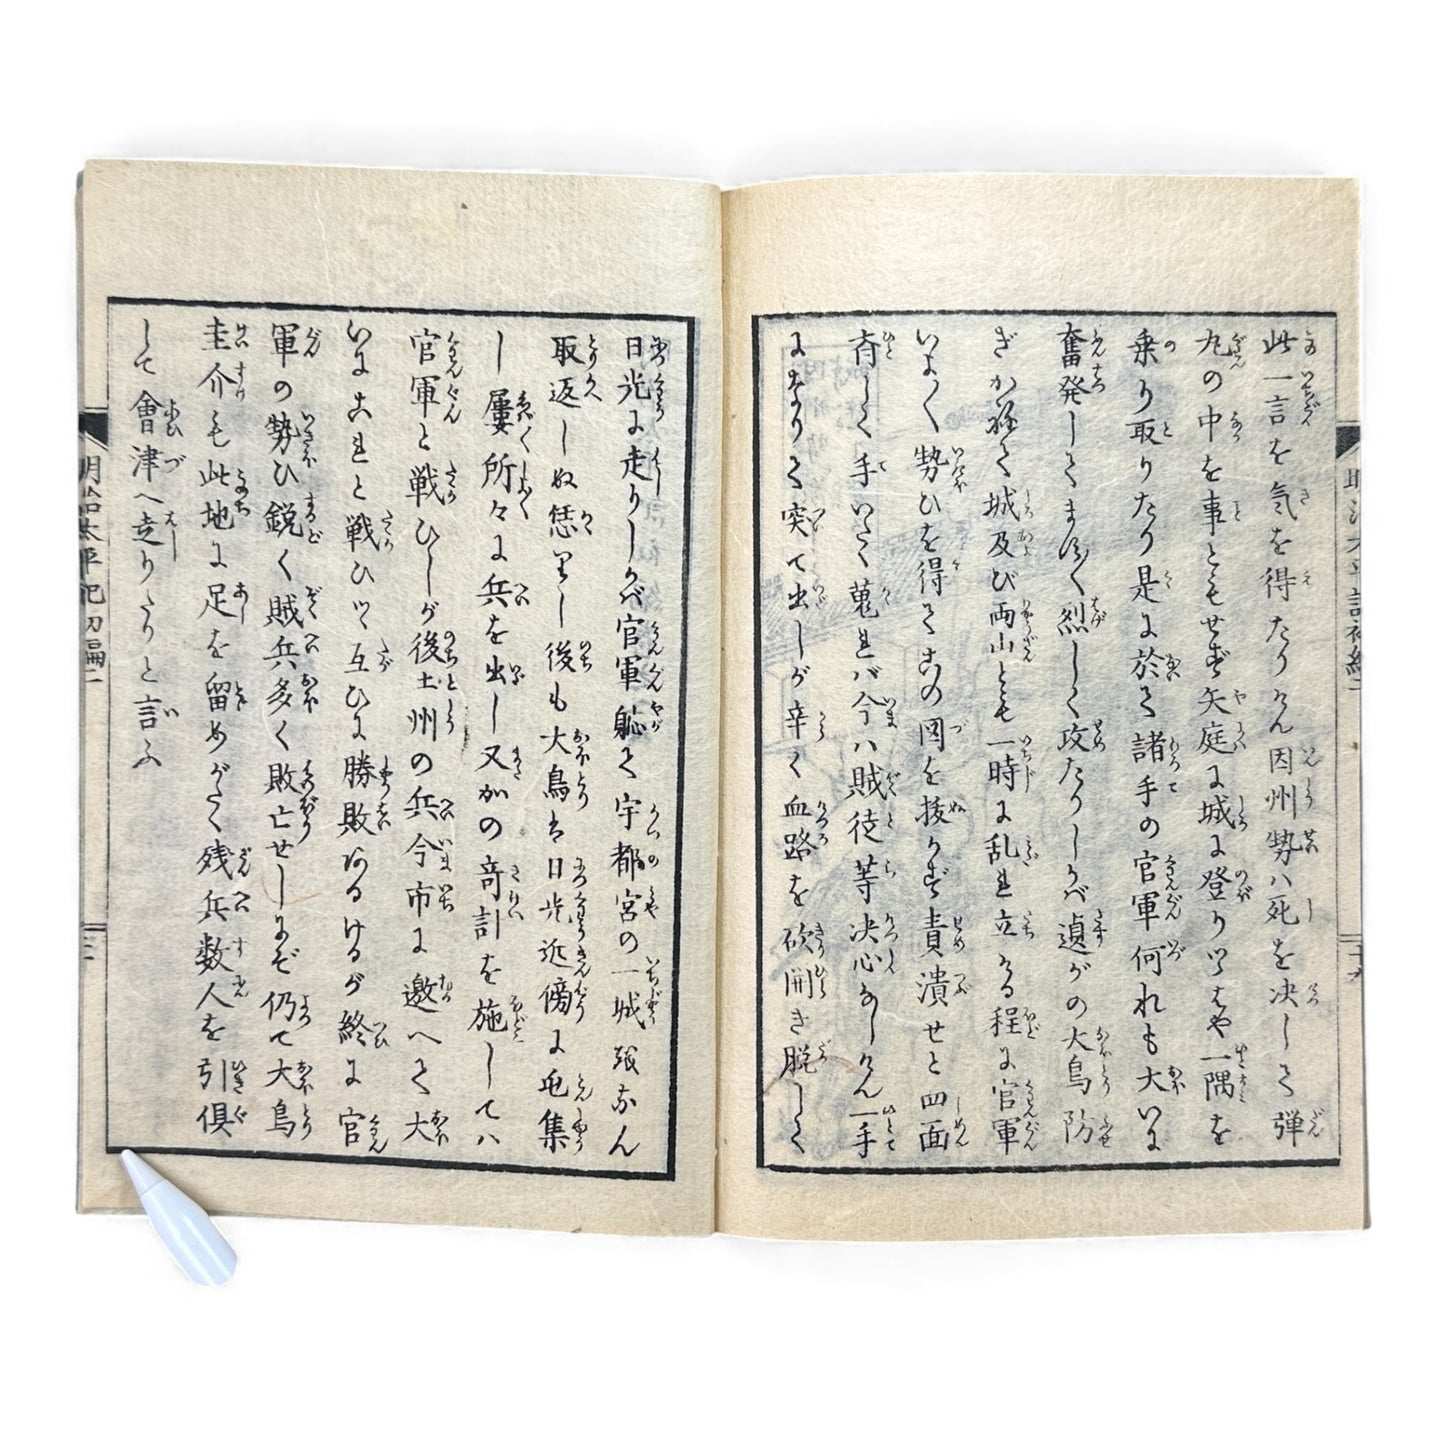 此一言を気を得たりけん因州勢ハ死を决して弾
丸の中を事ともせず矢庭に城に登りつゝはや一隅を
乗り取りたり是に於て諸手の官軍何れも大いに
奮発してますく烈しく攻たりしかバ遉がの大鳥防
ぎかねて城及び両山とも一時に乱れ立ける程に官軍
いよく勢ひを得てこの図を抜かず責潰せと四面
斉しく手いたく蒐れバ今ハ賊徒等决心なしけん一手
になりて突て出しが辛く血路を砍開き脱して
日光に走りしかバ官軍躰て宇都宮の一城なん
取返しぬ恁りし後も大鳥は日光近傍に屯集
し屢所々に兵を出し又かの奇計を施してハ
官軍と戦ひしが後土州の兵今市に邀へて大
いにこれと戦ひつ互ひに勝敗ありけるが終に官
軍の勢ひ鋭く賊兵多く敗亡せしにぞ仍て大鳥
圭介も此地に足を留めがたく残兵数人を引倶
して會津へ走りたりと言ふ
明治太平記初編二